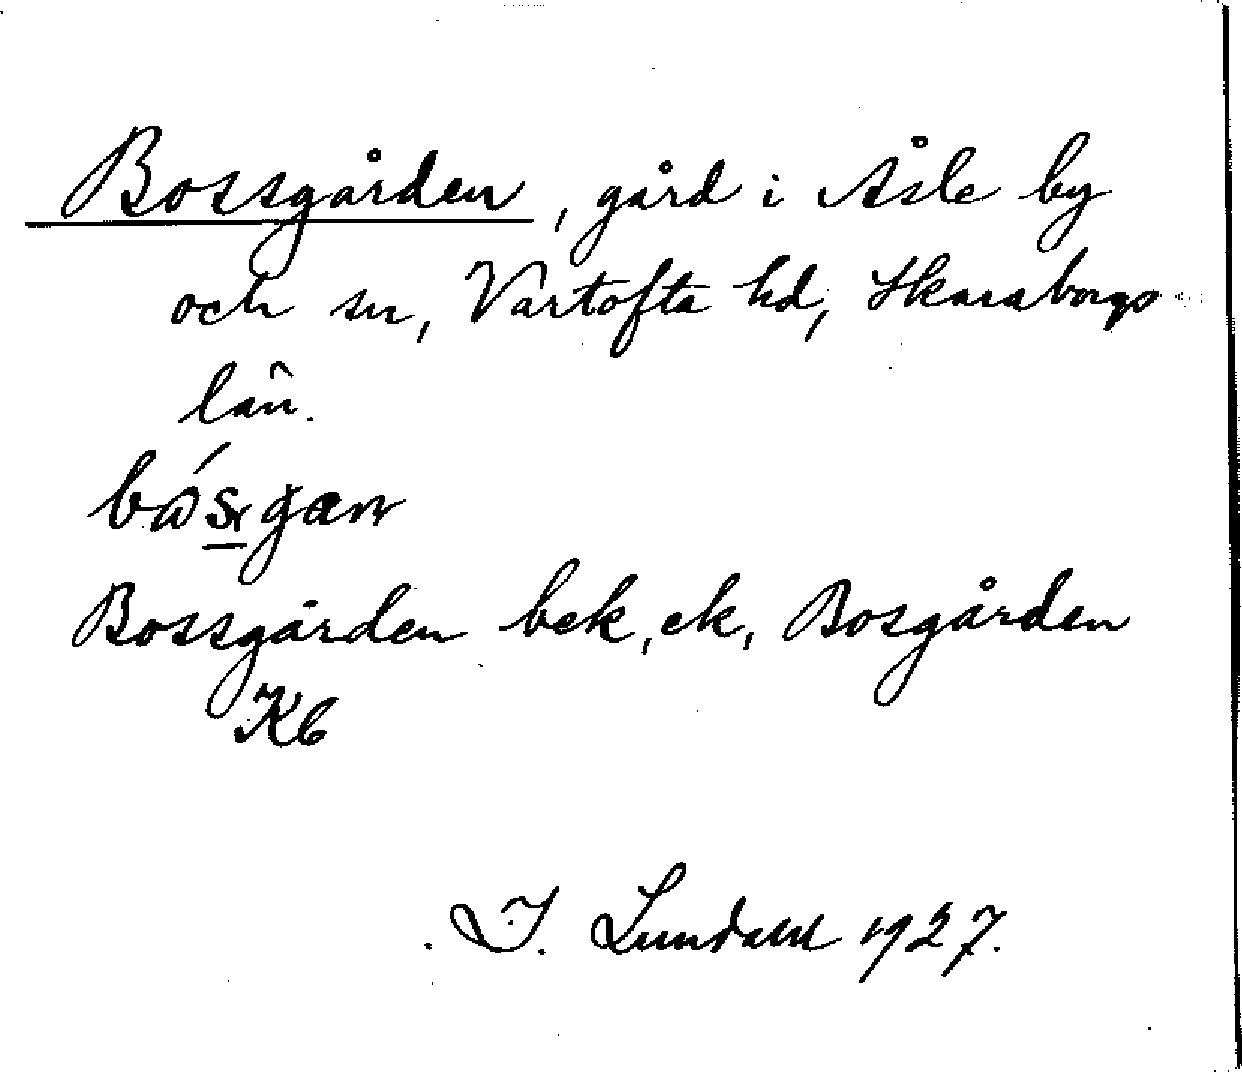 Bossgården, gård i Åsle by
och sn, Vartofta hd, Skaraborgs
län.
Bossgården bek, ek, Bosgården
Kb
I. Lundahl 1927.